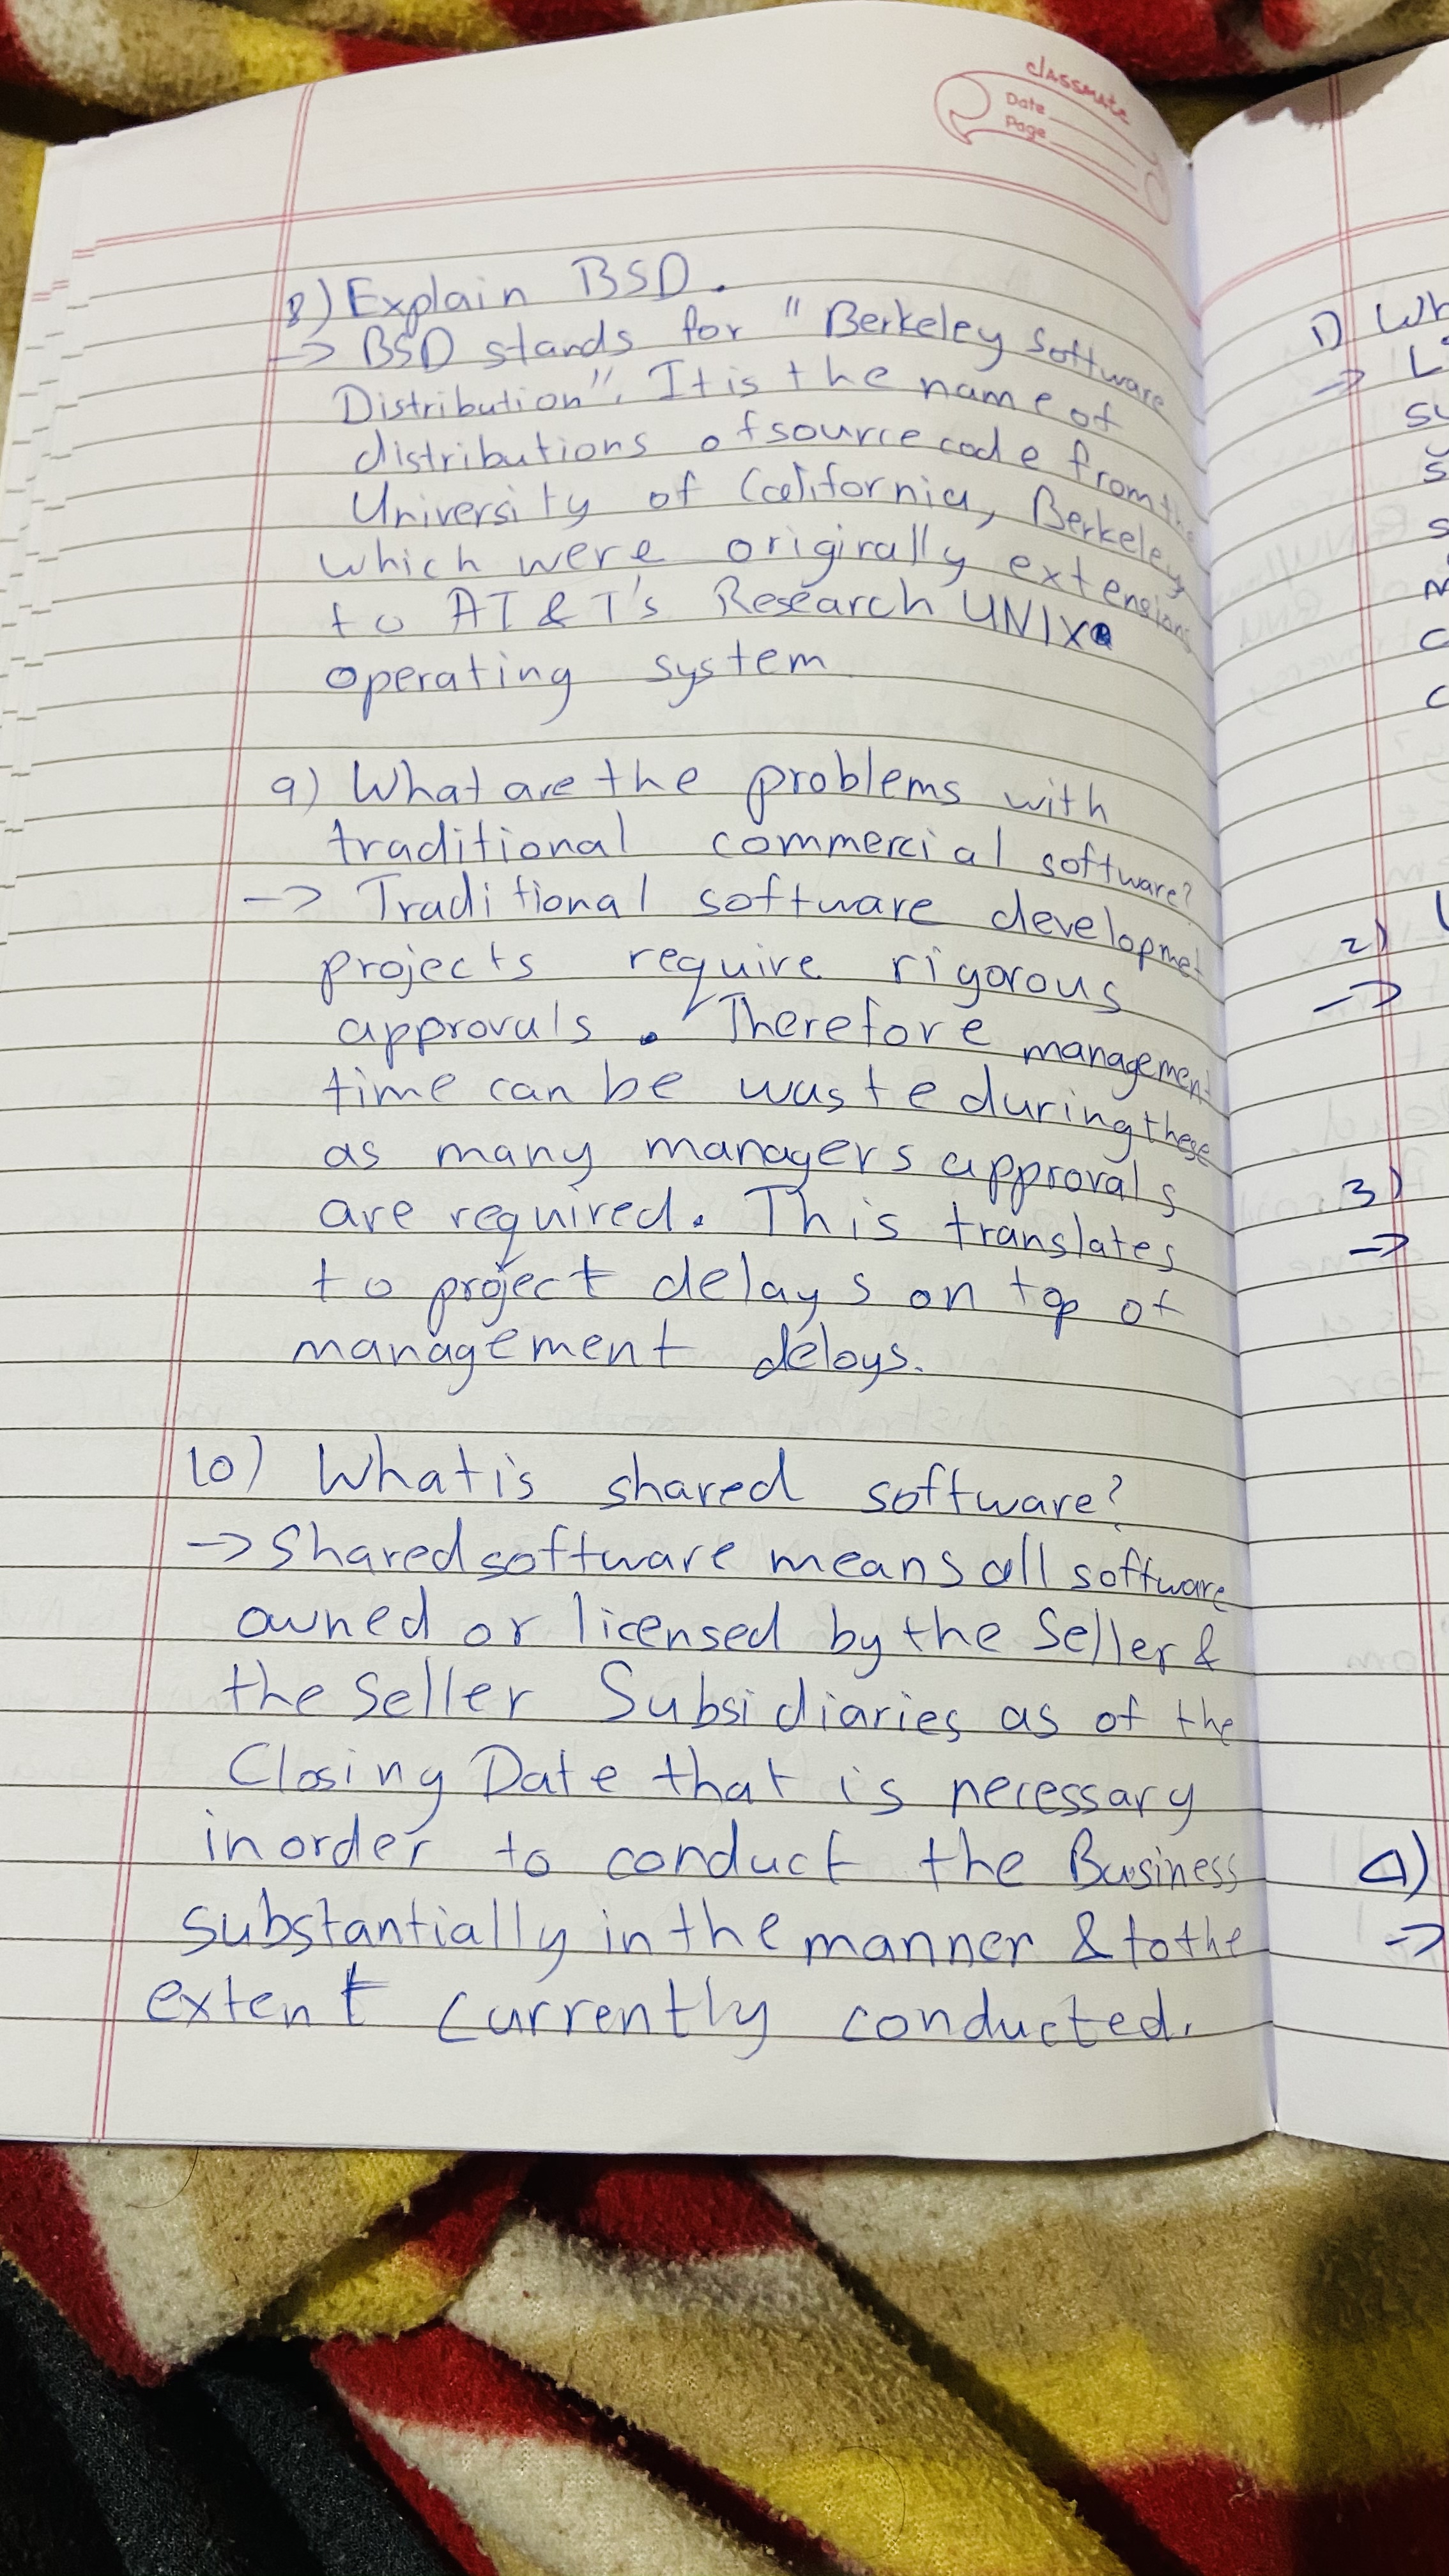 classmate
Date
Page
8) Explain BSD.
-> BSD stands for "Berkeley Software
Distribution". It is the name of
distributions of source code from the
University of California, Berkeley
which were originally extensions
to AT&T's Research UNIX
operating system
9) What are the problems with
traditional commercial software?
-> Traditional software developmet
projects require rigorous
approvals. Therefore management
time can be waste during these
as many managers approvals
are required. This translates
to project delays on top of
management delays.
10) What is shared software?
-> Shared software means all software
owned or licensed by the Seller &
the Seller Subsidiaries as of the
Closing Date that is necessary
in order to conduct the Business
substantially in the manner & to the
extent currently conducted.
1) Wh
->
2)
->
3)
->
4)
->